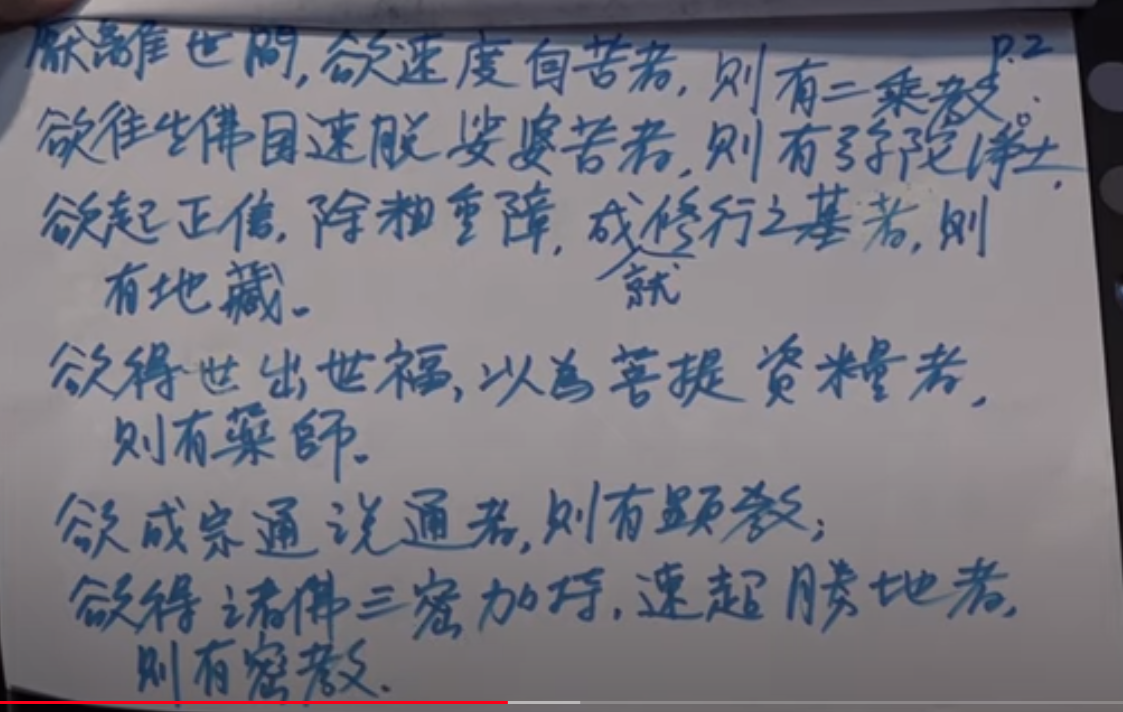 p.2
厭離世間,欲速度自苦者,則有二乘教。
欲往生佛国速脱娑婆苦者,則有弥陀淨土,
欲起正信,除粗重障,成修行之基者,則
就
有地藏。
欲得世出世福,以為菩提資糧者,
則有藥師。
欲成宗通说通者,則有顕教;
欲得诸佛三密加持,速起勝地者,
則有密教.